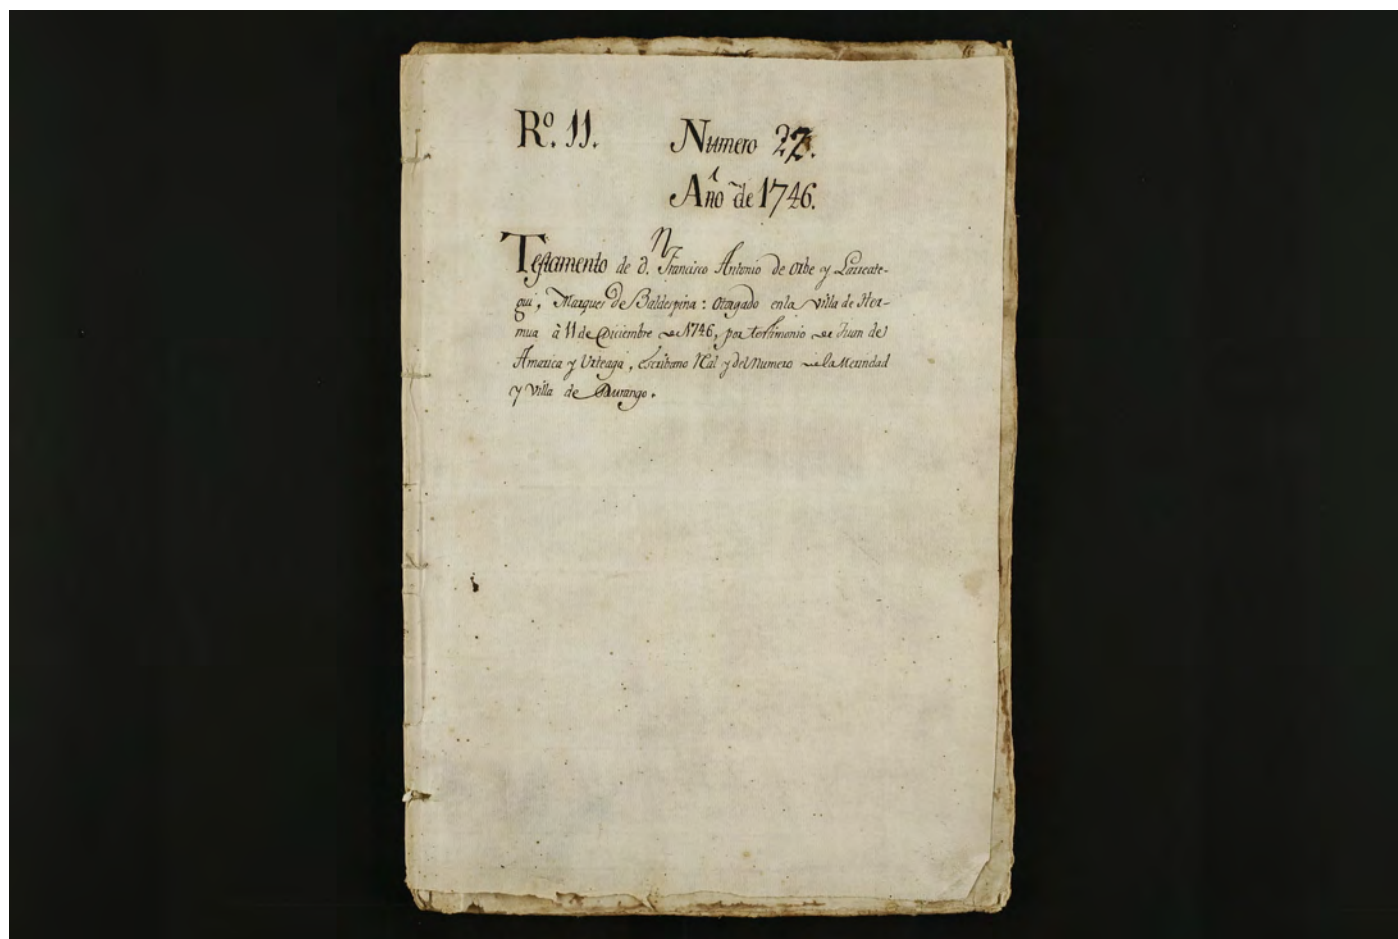 Rº. 11. Numero 22.
Año de 1746.
Testamento de d.n Francisco Antonio de Orbe y Larreate-
gui, Marques de Baldespina: Otorgado en la Villa de Her-
mua à 11 de Diciembre de 1746, por testimonio de Juan de
Amarica y Urteaga, escribano Rl. y del Numero de la Merindad
y Villa de Durango.